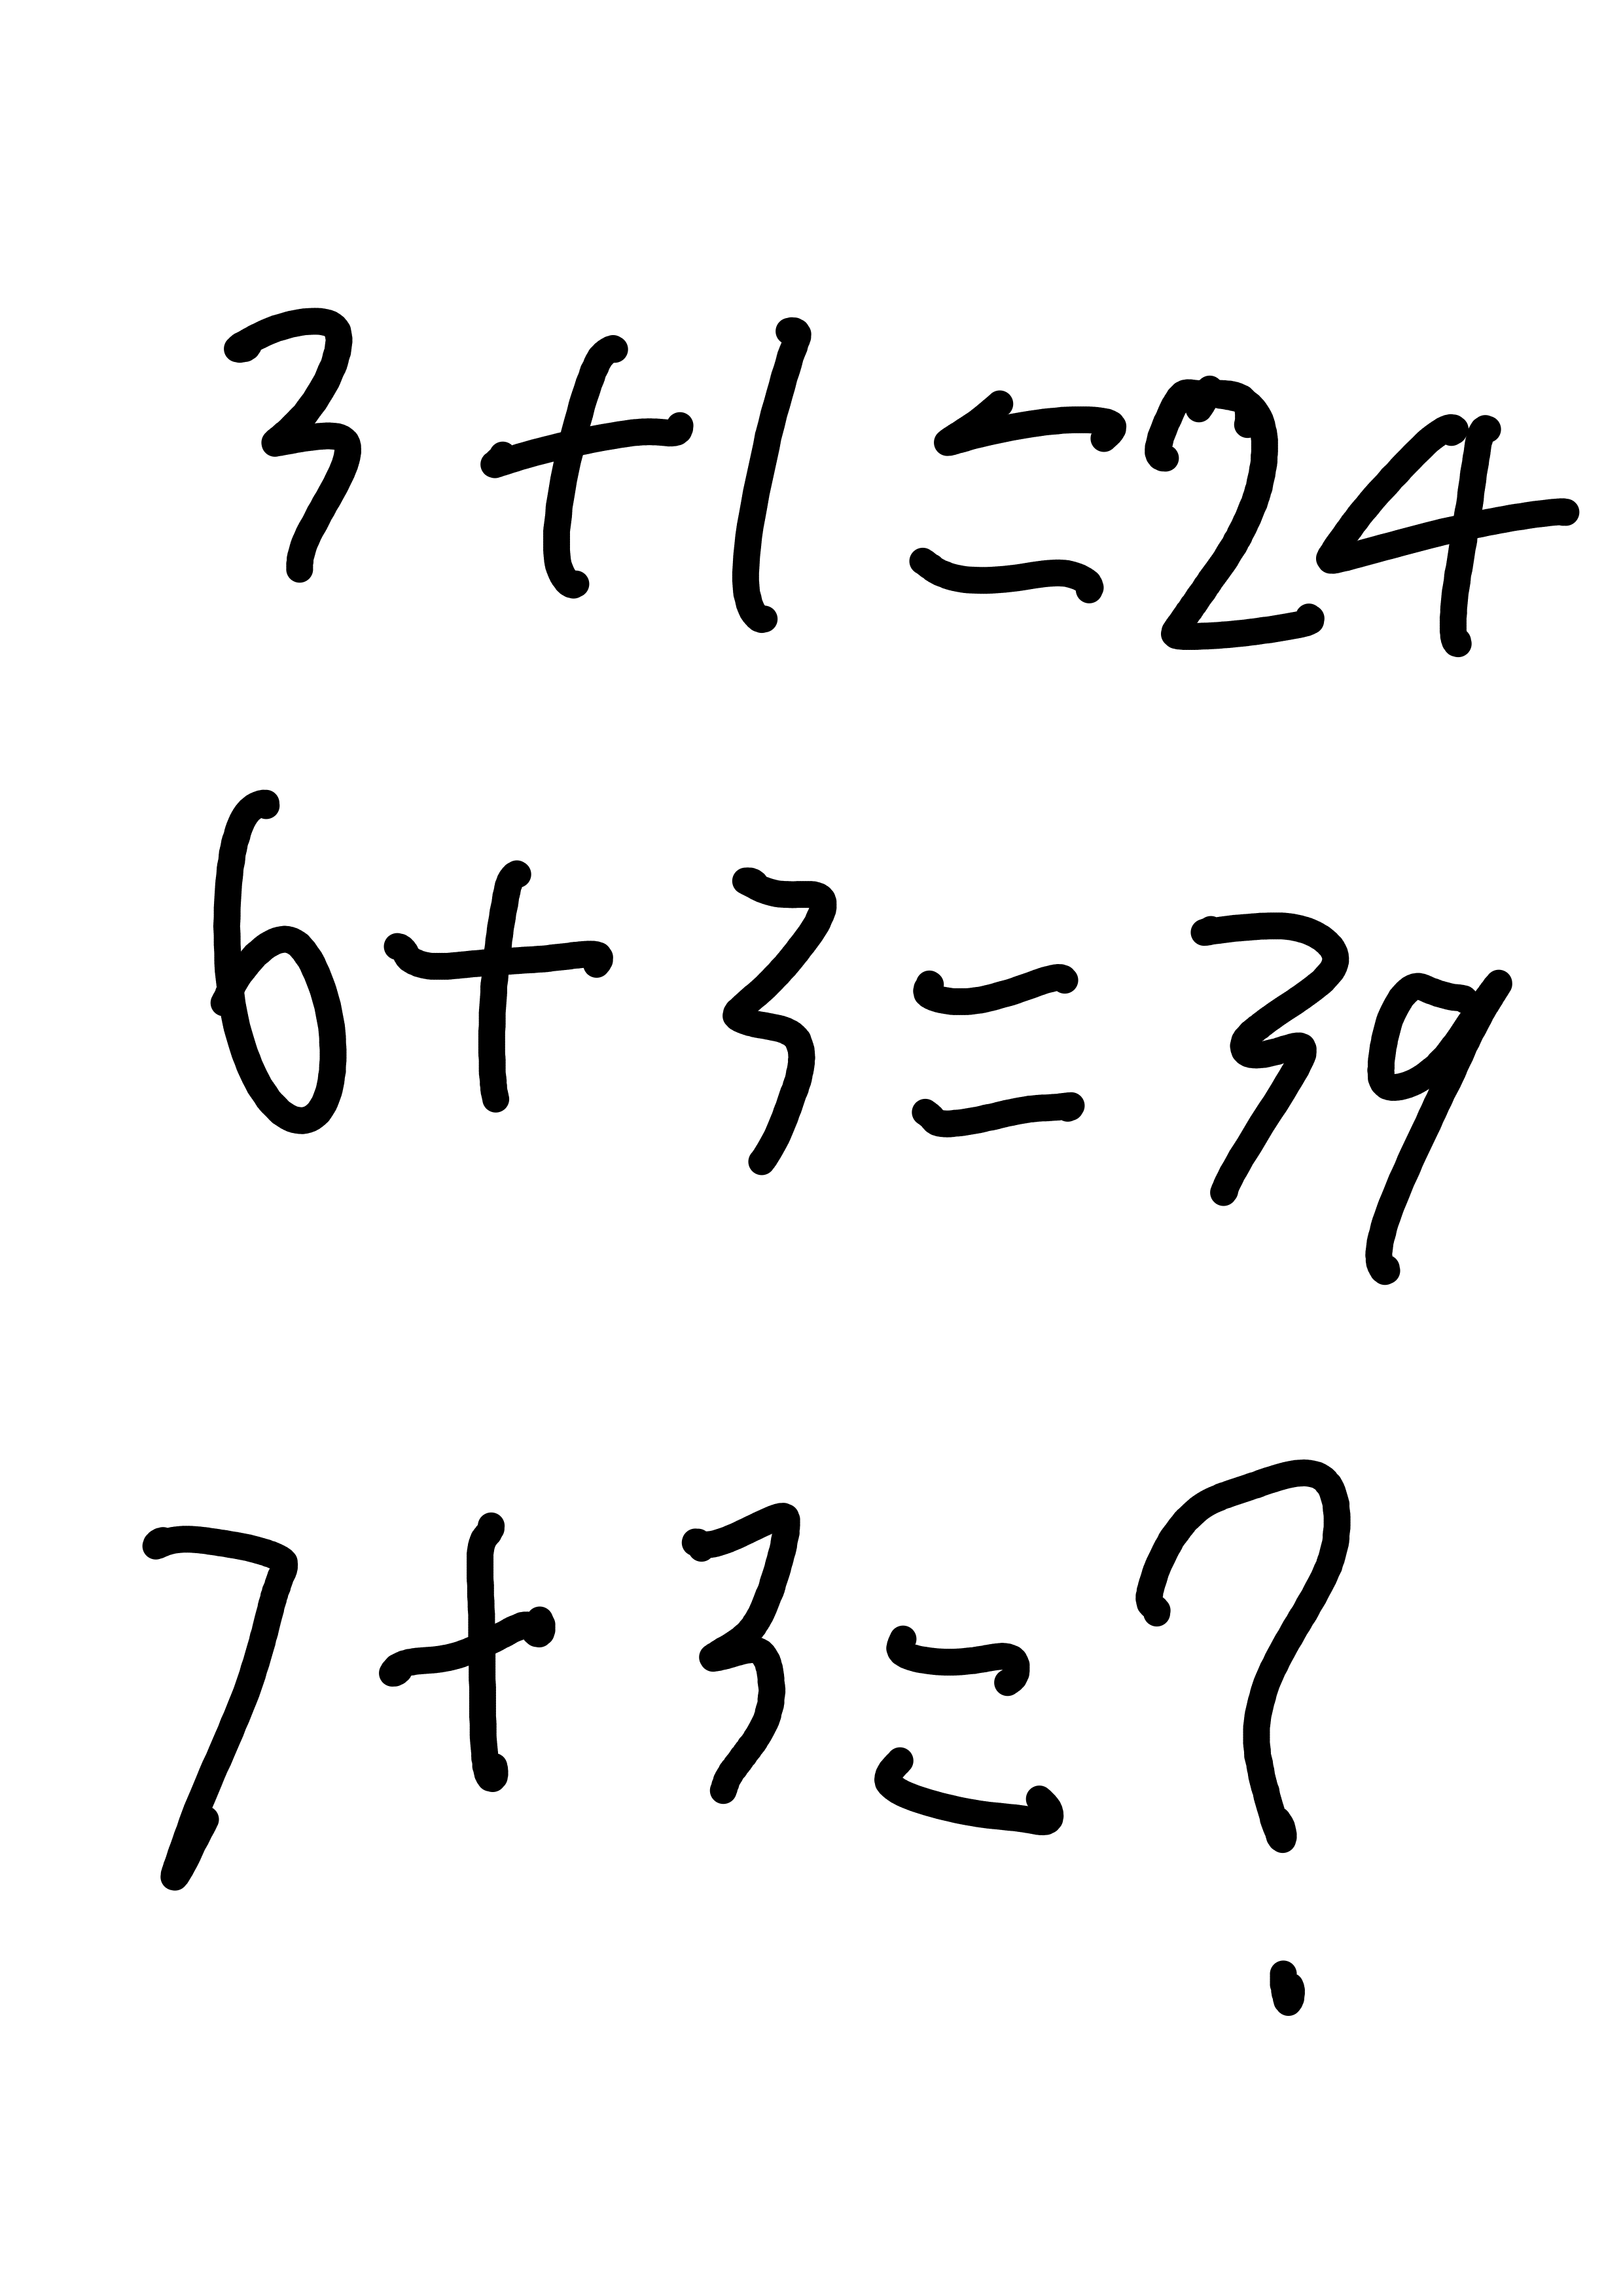 3 + 1 = 24
6 + 3 = 39
7 + 3 = ?